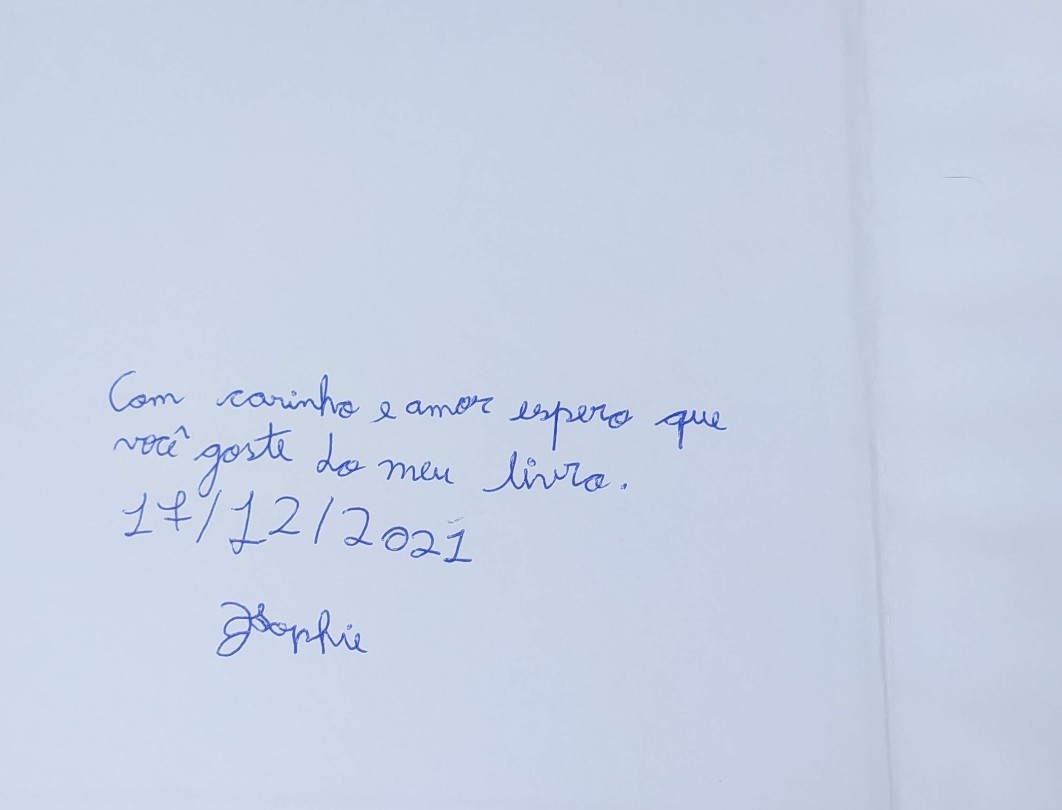 Com carinho e amor espero que
você goste do meu livro.
17/12/2021
Sophie